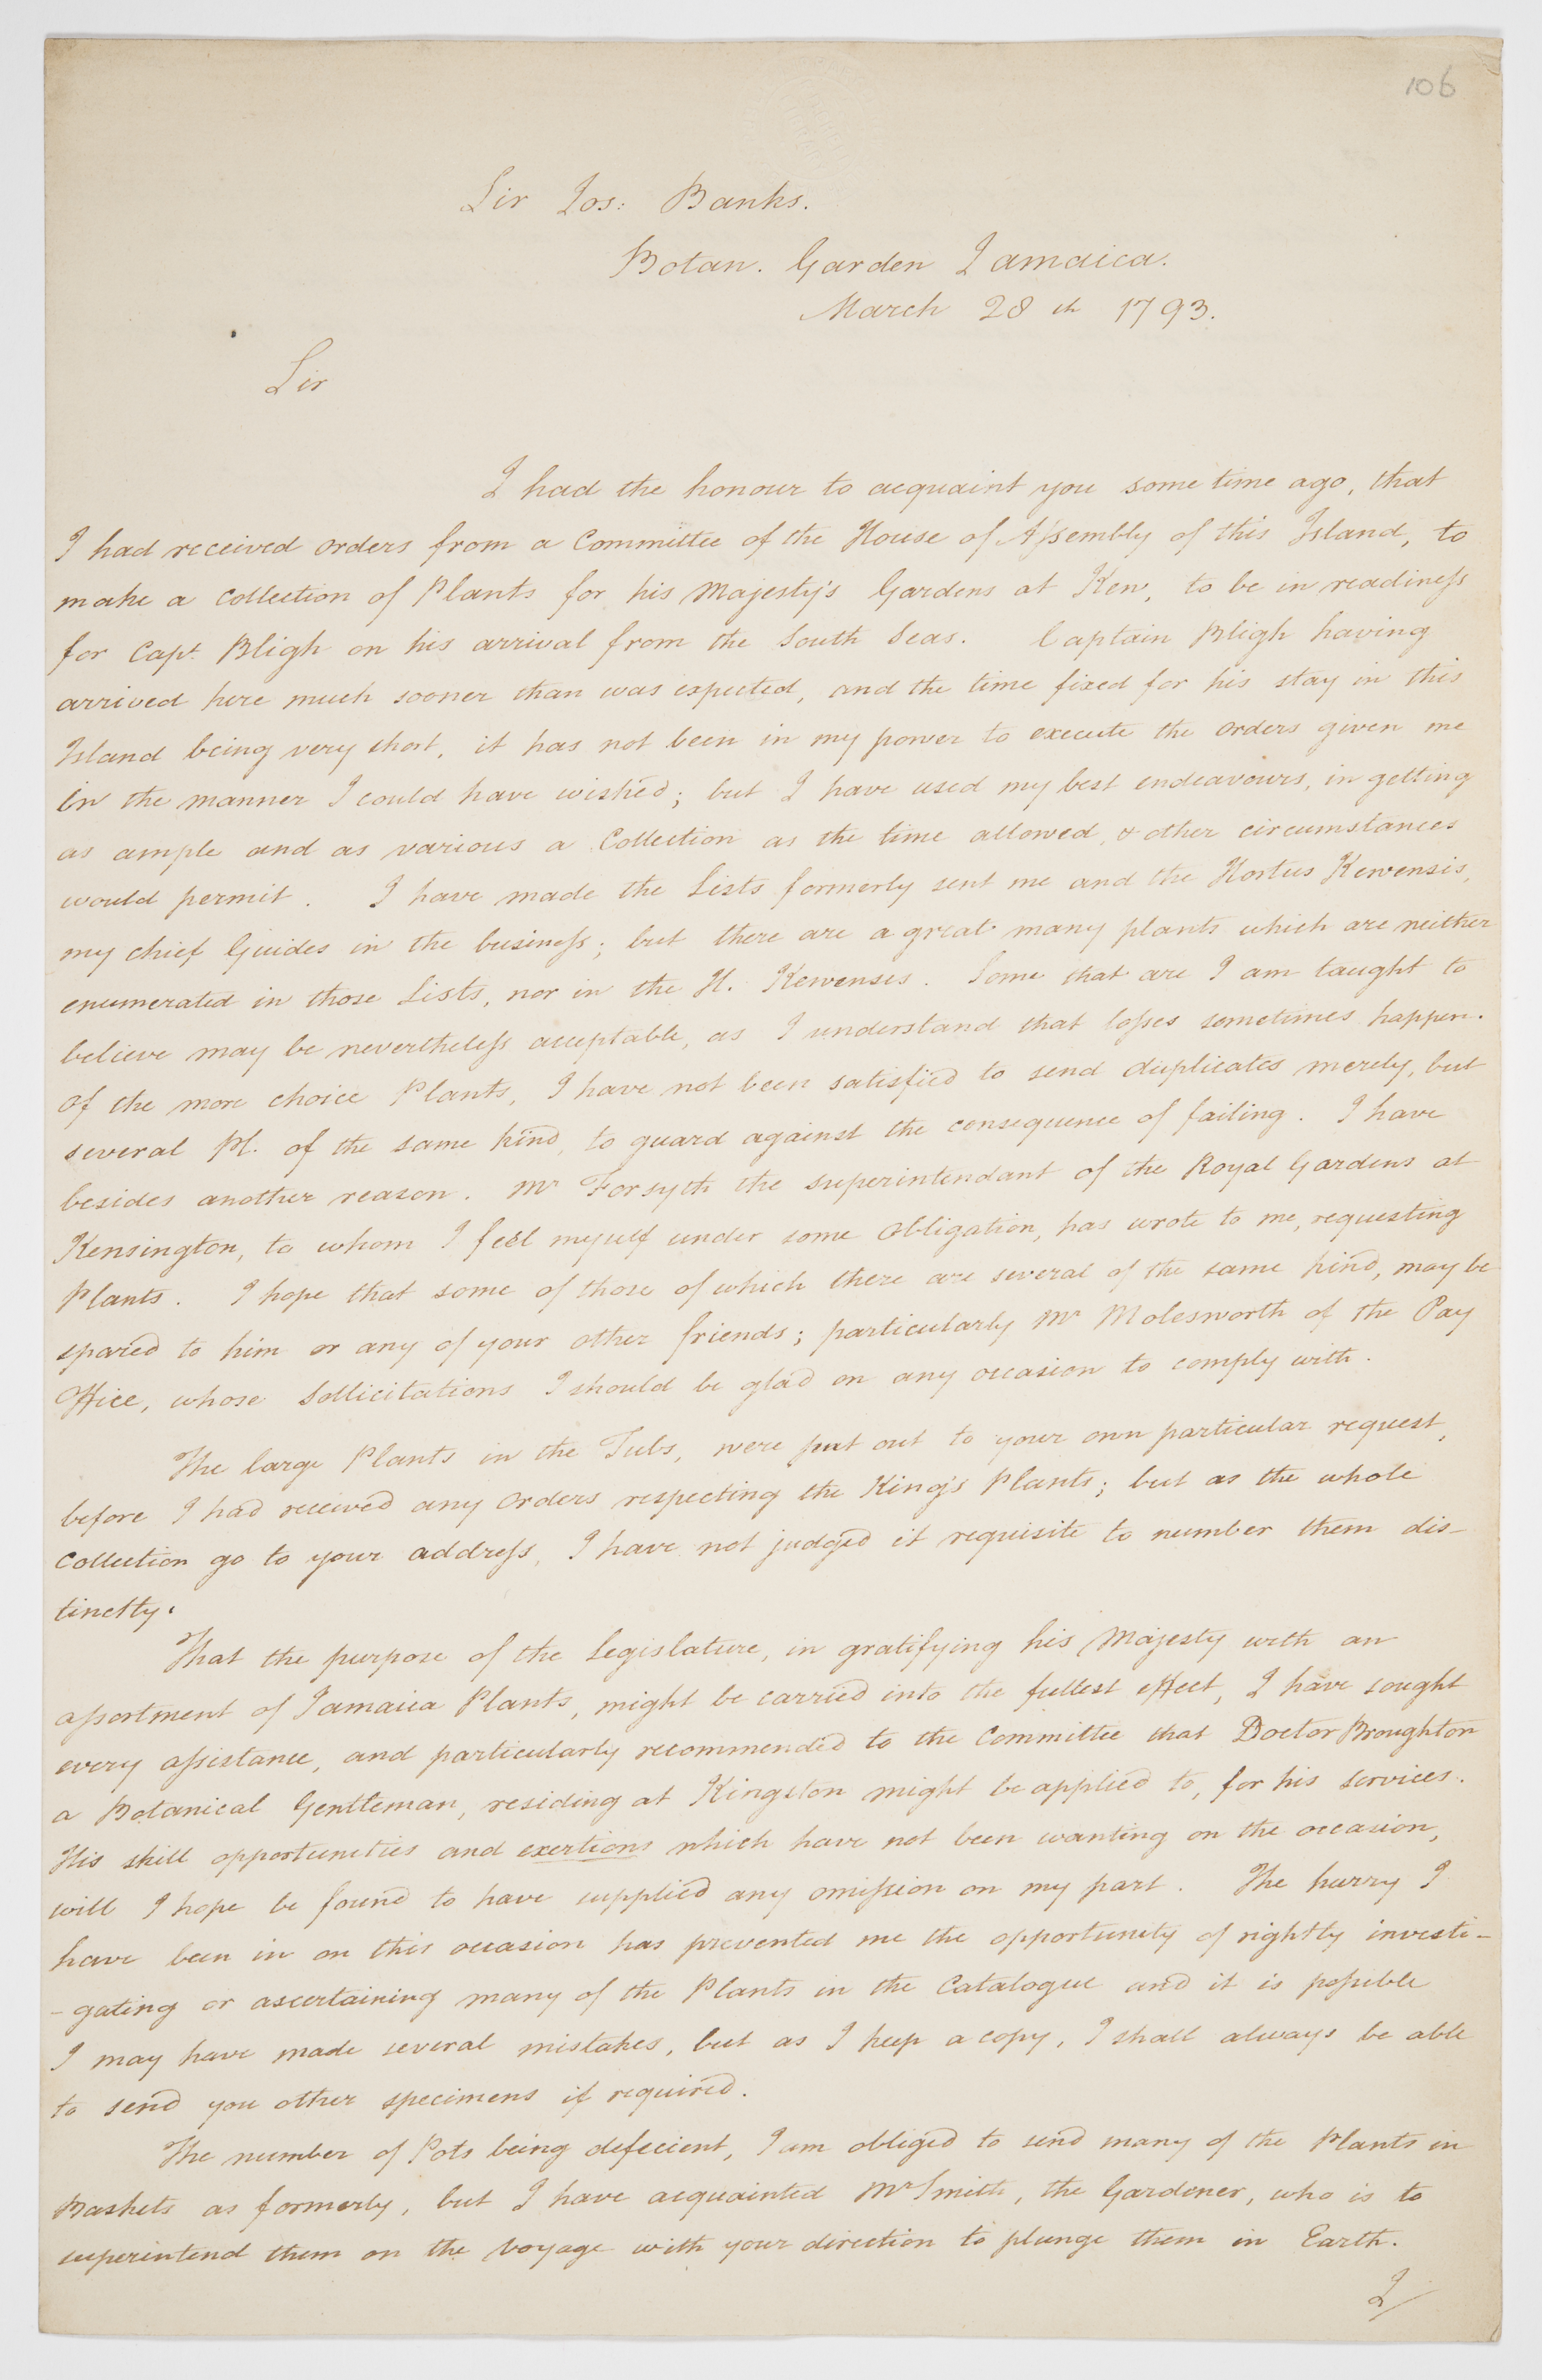 106
Sir Jos: Banks.
Botan. Garden Jamaica.
March 28th 1793.
Sir
I had the honour to acquaint you some time ago, that
I had received orders from a Committee of the House of Assembly of this Island, to
make a collection of Plants for his Majesty's Gardens at Kew, to be in readiness
for Capt. Bligh on his arrival from the South Seas. Captain Bligh having
arrived here much sooner than was expected, and the time fixed for his stay in this
Island being very short, it has not been in my power to execute the orders given me
in the manner I could have wished; but I have used my best endeavours, in getting
as ample and as various a Collection as the time allowed, & other circumstances
would permit. I have made the Lists formerly sent me and the Hortus Kewensis,
my chief Guides in the business; but there are a great many plants which are neither
enumerated in those Lists, nor in the H. Kewensis. Some that are I am taught to
believe may be nevertheless acceptable, as I understand that losses sometimes happen.
Of the more choice Plants, I have not been satisfied to send duplicates merely, but
several Pl. of the same kind, to guard against the consequence of failing. I have
besides another reason. Mr Forsyth the superintendant of the Royal Gardens at
Kensington, to whom I feel myself under some obligation, has wrote to me, requesting
Plants. I hope that some of those of which there are several of the same kind, may be
spared to him or any of your other friends; particularly Mr Molesworth of the Pay
Office, whose Sollicitations I should be glad on any occasion to comply with.
The large Plants in the Tubs, were put out to your own particular request,
before I had received any Orders respecting the King's Plants; but as the whole
Collection go to your address, I have not judged it requisite to number them dis-
tinctly.
That the purpose of the Legislature, in gratifying his Majesty with an
assortment of Jamaica Plants, might be carried into the fullest effect, I have sought
every assistance, and particularly recommended to the Committee that Doctor Broughton
a Botanical Gentleman, residing at Kingston might be applied to, for his services.
His skill opportunities and exertions which have not been wanting on the occasion,
will I hope be found to have supplied any omission on my part. The hurry I
have been in on this occasion has prevented me the opportunity of rightly investi-
-gating or ascertaining many of the Plants in the Catalogue and it is possible
I may have made several mistakes, but as I keep a copy, I shall always be able
to send you other specimens if required.
The number of Pots being defecient, I am obliged to send many of the Plants in
Baskets as formerly, but I have acquainted Mr Smith, the Gardener, who is to
superintend them on the voyage with your direction to plunge them in Earth.
I